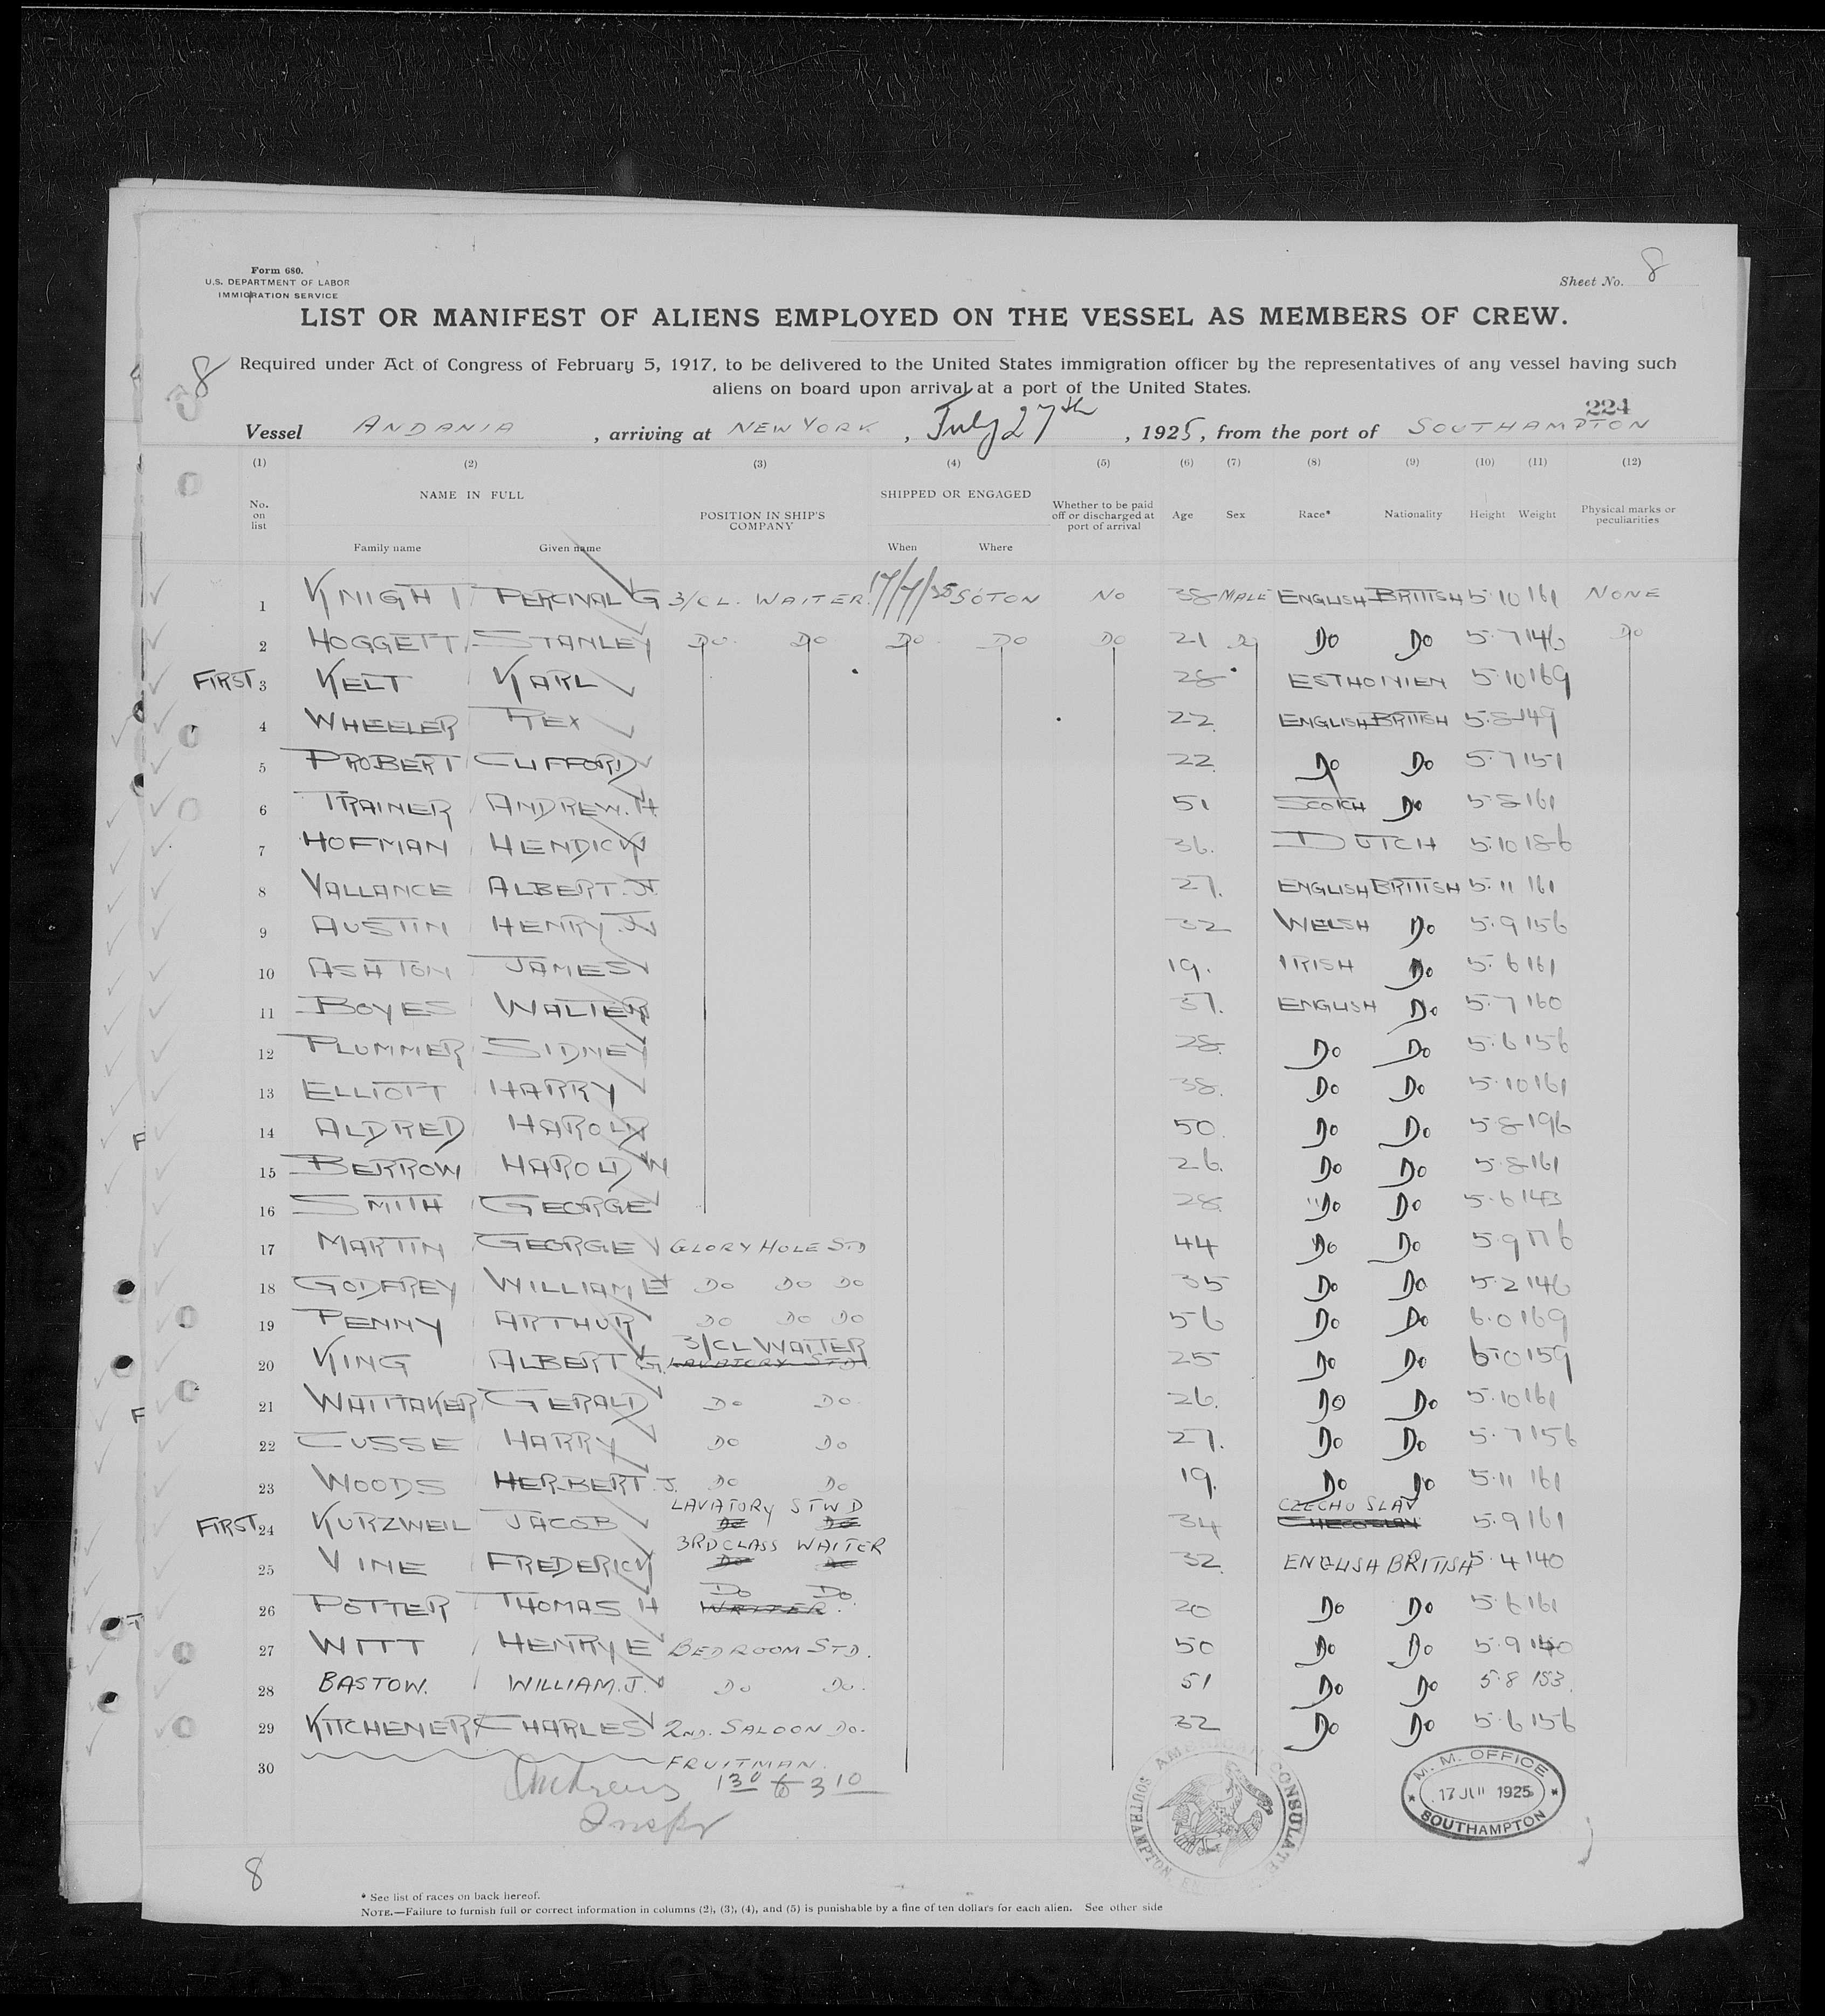 Form 680.
U.S. DEPARTMENT OF LABOR
IMMIGRATION SERVICE
Sheet No. 8
LIST OR MANIFEST OF ALIENS EMPLOYED ON THE VESSEL AS MEMBERS OF CREW.
8
Required under Act of Congress of February 5, 1917, to be delivered to the United States immigration officer by the representatives of any vessel having such
aliens on board upon arrival at a port of the United States.
224
Vessel ANDANIA, arriving at NEW YORK, July 27th, 1925, from the port of SOUTHAMPTON
(1) (2) (3) (4) (5) (6) (7) (8) (9) (10) (11) (12)
No. on list NAME IN FULL Family name Given name POSITION IN SHIP'S COMPANY SHIPPED OR ENGAGED When Where Whether to be paid off or discharged at port of arrival Age Sex Race* Nationality Height Weight Physical marks or peculiarities
1 KNIGHT PERCIVAL G 3/CL. WAITER. 17/7/25 SOTON NO 38 MALE ENGLISH BRITISH 5.10 161 NONE
2 HOGGETT STANLEY DO DO DO DO DO 21 DO DO DO 5.7 146 DO
FIRST 3 KELT KARL 28 ESTHONIEN 5.10 169
4 WHEELER REX 22 ENGLISH BRITISH 5.8 149
5 PROBERT CLIFFORD 22 DO DO 5.7 151
6 TRAINER ANDREW. H. 51 SCOTCH DO 5.8 161
7 HOFMAN HENDICK 36. DUTCH 5.10 186
8 VALLANCE ALBERT. 27. ENGLISH BRITISH 5.11 161
9 AUSTIN HENRY. 32 WELSH DO 5.9 156
10 ASHTON JAMES 19. IRISH DO 5.6 161
11 BOYES WALTER 37. ENGLISH DO 5.7 160
12 PLUMMER SIDNEY 28. DO DO 5.6 156
13 ELLIOTT HARRY 38. DO DO 5.10 161
F 14 ALDRED HAROLD 50. DO DO 5.8 196
15 BERROW HAROLD W 26. DO DO 5.8 161
16 SMITH GEORGE 28. DO DO 5.6 143
17 MARTIN GEORGE GLORY HOLE STD 44 DO DO 5.9 176
18 GODFREY WILLIAM E DO DO DO 35 DO DO 5.2 146
19 PENNY ARTHUR DO DO DO 56 DO DO 6.0 169
3/CL WAITER
20 KING ALBERT G. LAVATORY STD 25 DO DO 6.0 159
F 21 WHITTAKER GERALD DO DO 26. DO DO 5.10 161
22 CUSSE HARRY DO DO 27. DO DO 5.7 156
23 WOODS HERBERT J. DO DO 19. DO DO 5.11 161
LAVIATORY STWD CZECHO SLAV
FIRST 24 KURZWEIL JACOB DO DO 34 5.9 161
3RD CLASS WAITER
25 VINE FREDERICK DO DO 32. ENGLISH BRITISH 5.4 140
DO DO
26 POTTER THOMAS H WAITER. 20 DO DO 5.6 161
27 WITT HENRY E BEDROOM STD. 50 DO DO 5.9 140
28 BASTOW. WILLIAM. J. DO DO. 51 DO DO 5.8 153.
29 KITCHENER CHARLES 2ND. SALOON DO. 32 DO DO 5.6 156
30 FRUITMAN.
130 to 310
Inspr
AMERICAN CONSULATE SOUTHAMPTON
M. M. OFFICE
17 JUL 1925
SOUTHAMPTON
8
* See list of races on back hereof.
NOTE.—Failure to furnish full or correct information in columns (2), (3), (4), and (5) is punishable by a fine of ten dollars for each alien. See other side